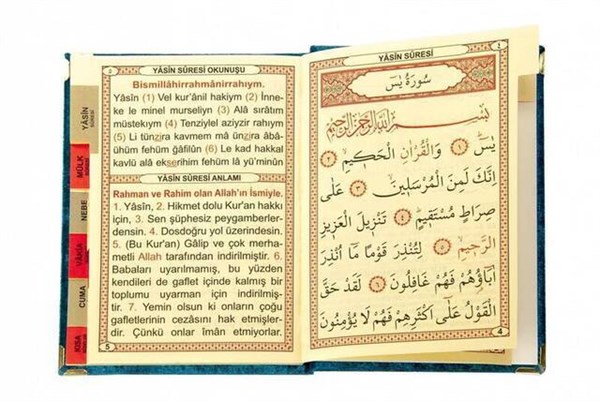 YÂSİN SÛRESİ ٤
سُورَةُ يٰسٓ
بِسْمِ اللهِ الرَّحْمٰنِ الرَّحِيمِ
يٰسٓ ﴿١﴾ وَالْقُرْاٰنِ الْحَكِيمِ ﴿٢﴾
اِنَّكَ لَمِنَ الْمُرْسَلِينَ ﴿٣﴾ عَلٰى
صِرَاطٍ مُسْتَقِيمٍ ﴿٤﴾ تَنْزِيلَ الْعَزِيزِ
الرَّحِيمِ ﴿٥﴾ لِتُنْذِرَ قَوْمًا مَٓا اُنْذِرَ
اٰبَٓاؤُهُمْ فَهُمْ غَافِلُونَ ﴿٦﴾ لَقَدْ حَقَّ
الْقَوْلُ عَلٰٓى اَكْثَرِهِمْ فَهُمْ لَا يُؤْمِنُونَ
4
٥ YÂSİN SÛRESİ OKUNUŞU
Bismillâhirrahmânirrahıym.
Yâsîn (1) Vel kur'ânil hakiym (2) İnne-
ke le minel murseliyn (3) Alâ sıratım
müstekıym (4) Tenziylel aziyzir rahıym
(5) Li tünzira kavmem mâ ünzira âbâ-
ühüm fehüm gâfilûn (6) Le kad hakkal
kavlü alâ ekserihim fehüm lâ yü'minûn
YÂSİN SÛRESİ ANLAMI
Rahman ve Rahim olan Allah'ın İsmiyle.
1. Yâsîn, 2. Hikmet dolu Kur'an hakkı
için, 3. Sen şüphesiz peygamberler-
densin. 4. Dosdoğru yol üzerindesin.
5. (Bu Kur'an) Gâlip ve çok merha-
metli Allah tarafından indirilmiştir. 6.
Babaları uyarılmamış, bu yüzden
kendileri de gaflet içinde kalmış bir
toplumu uyarman için indirilmiş-
tir. 7. Yemin olsun ki onların çoğu
gafletlerinin cezasını hak etmişler-
dir. Çünkü onlar îmân etmiyorlar.
5
YÂSİN
SÛRESİ
MÜLK
NEBE
VAKIA
CUMA
KISA